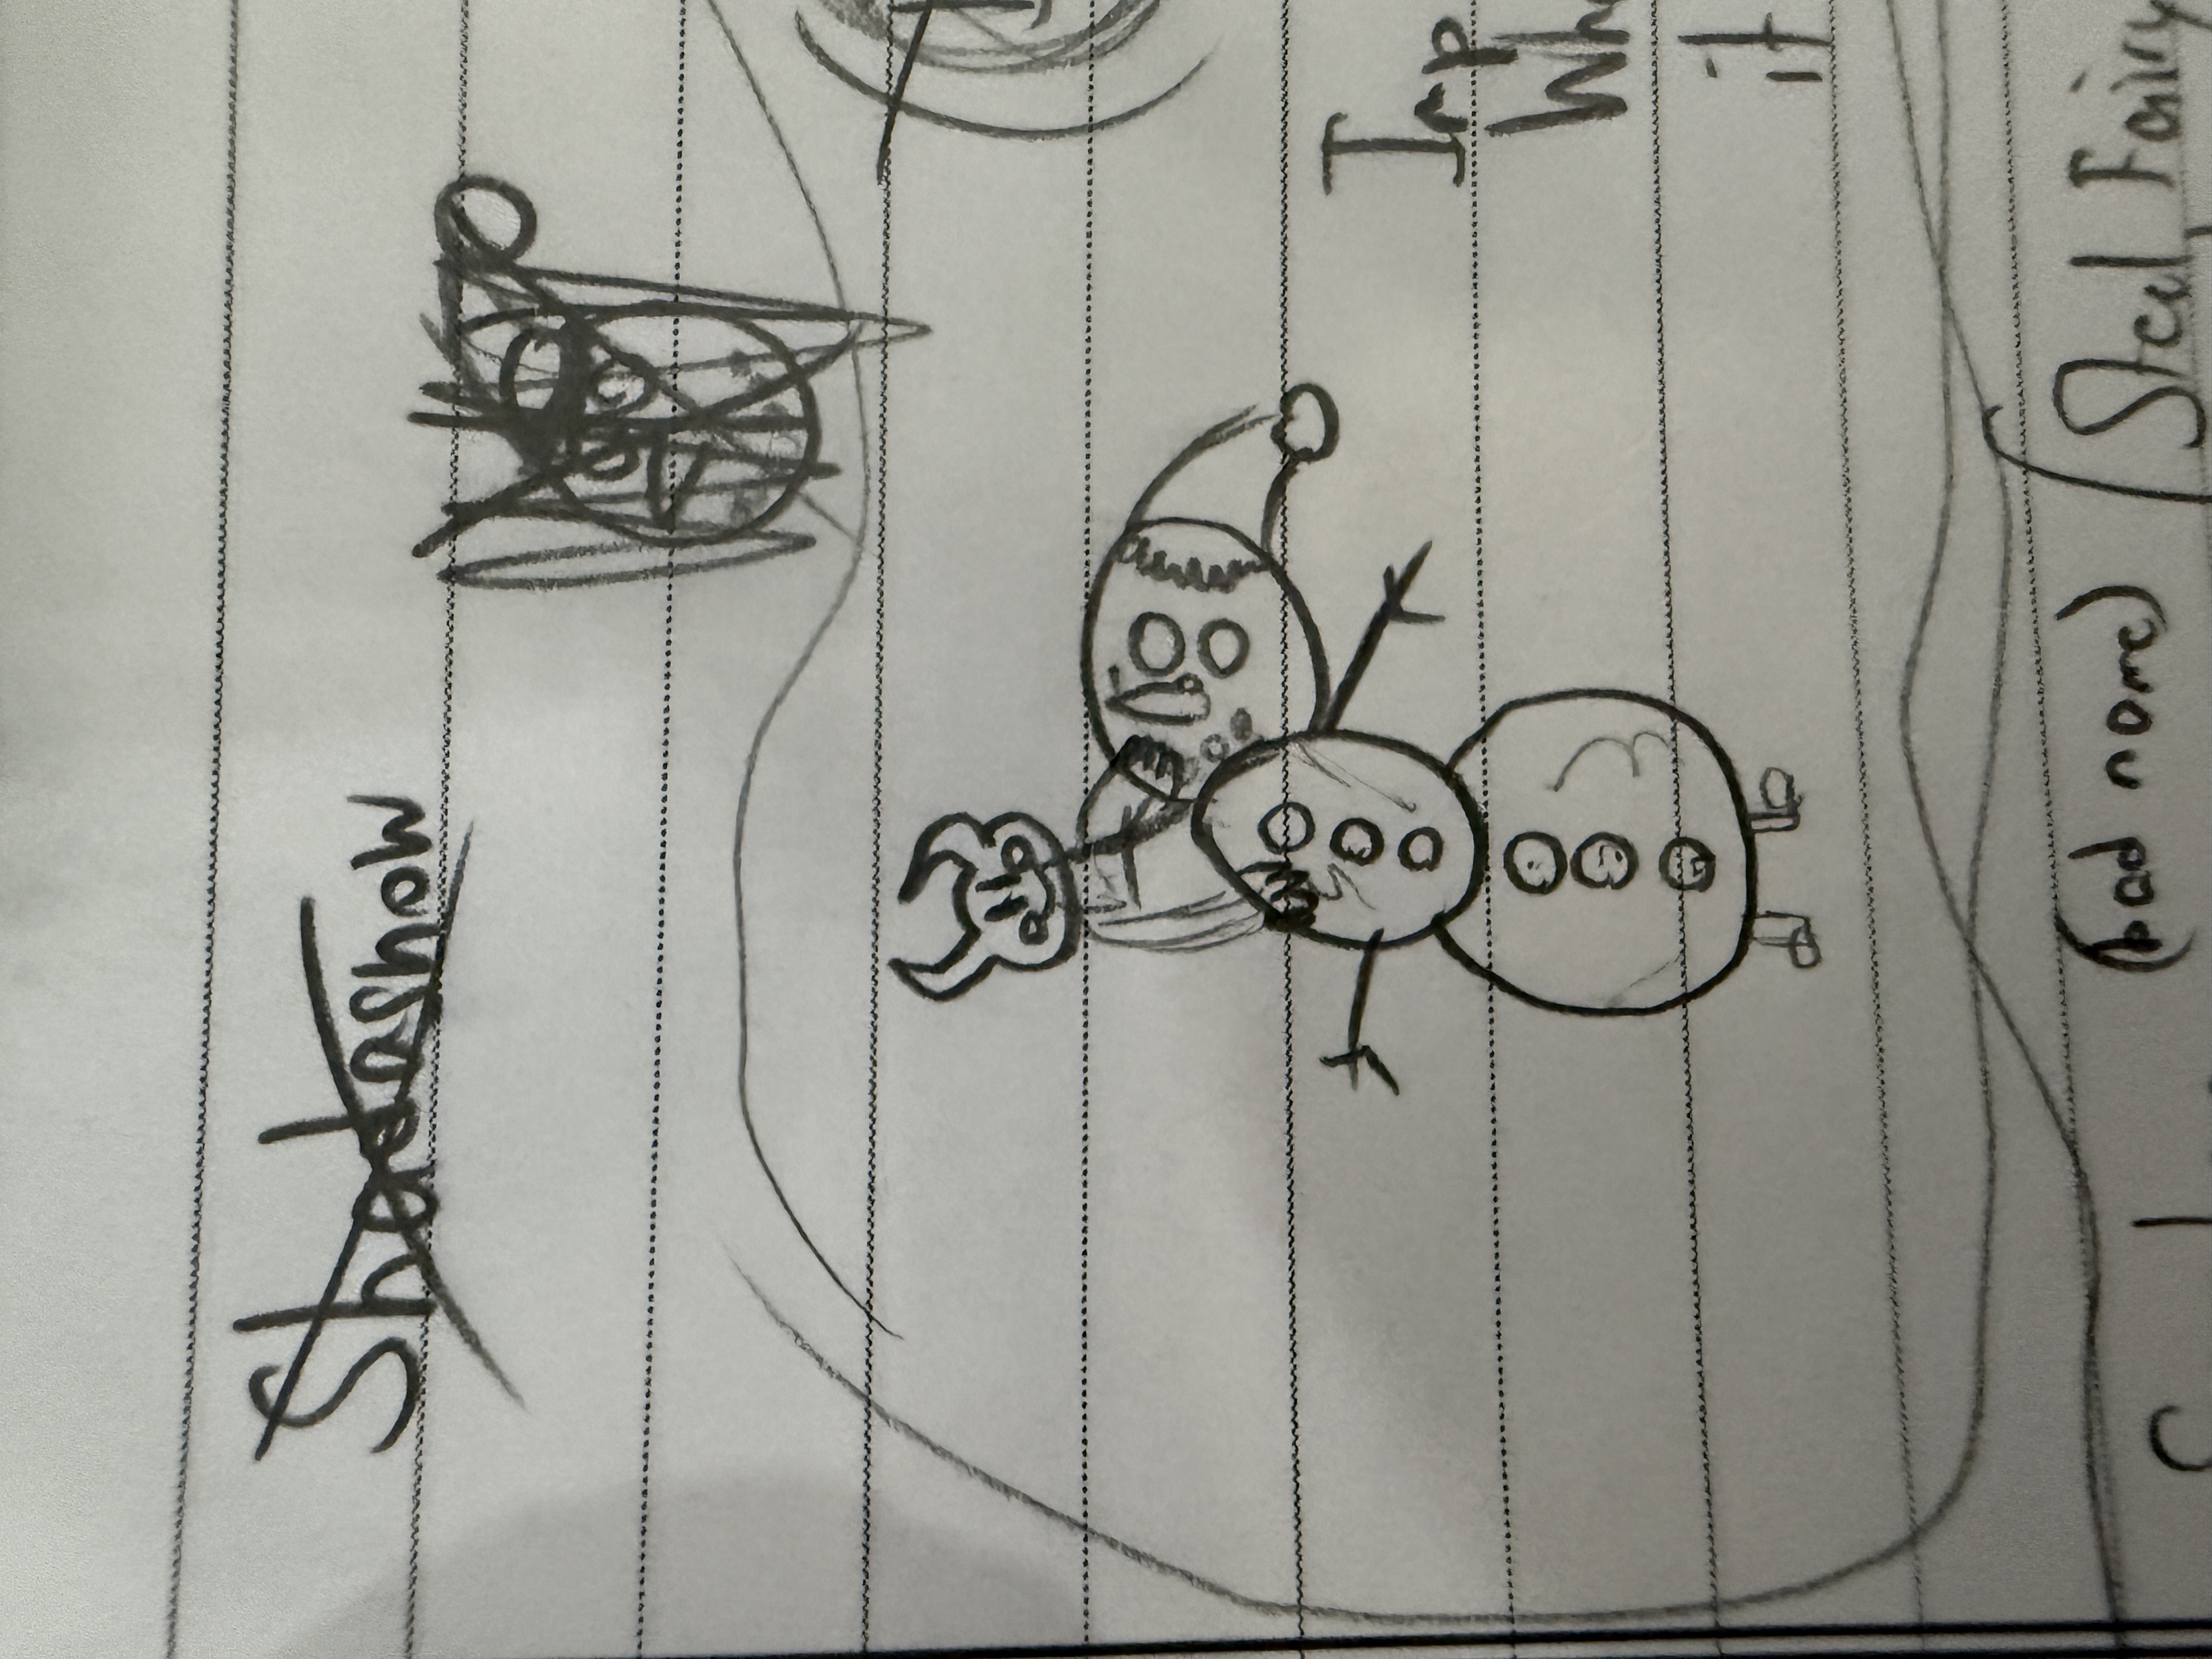 Shadasnow
Imp
Wh
it
(bad name)
Steel, Fairy